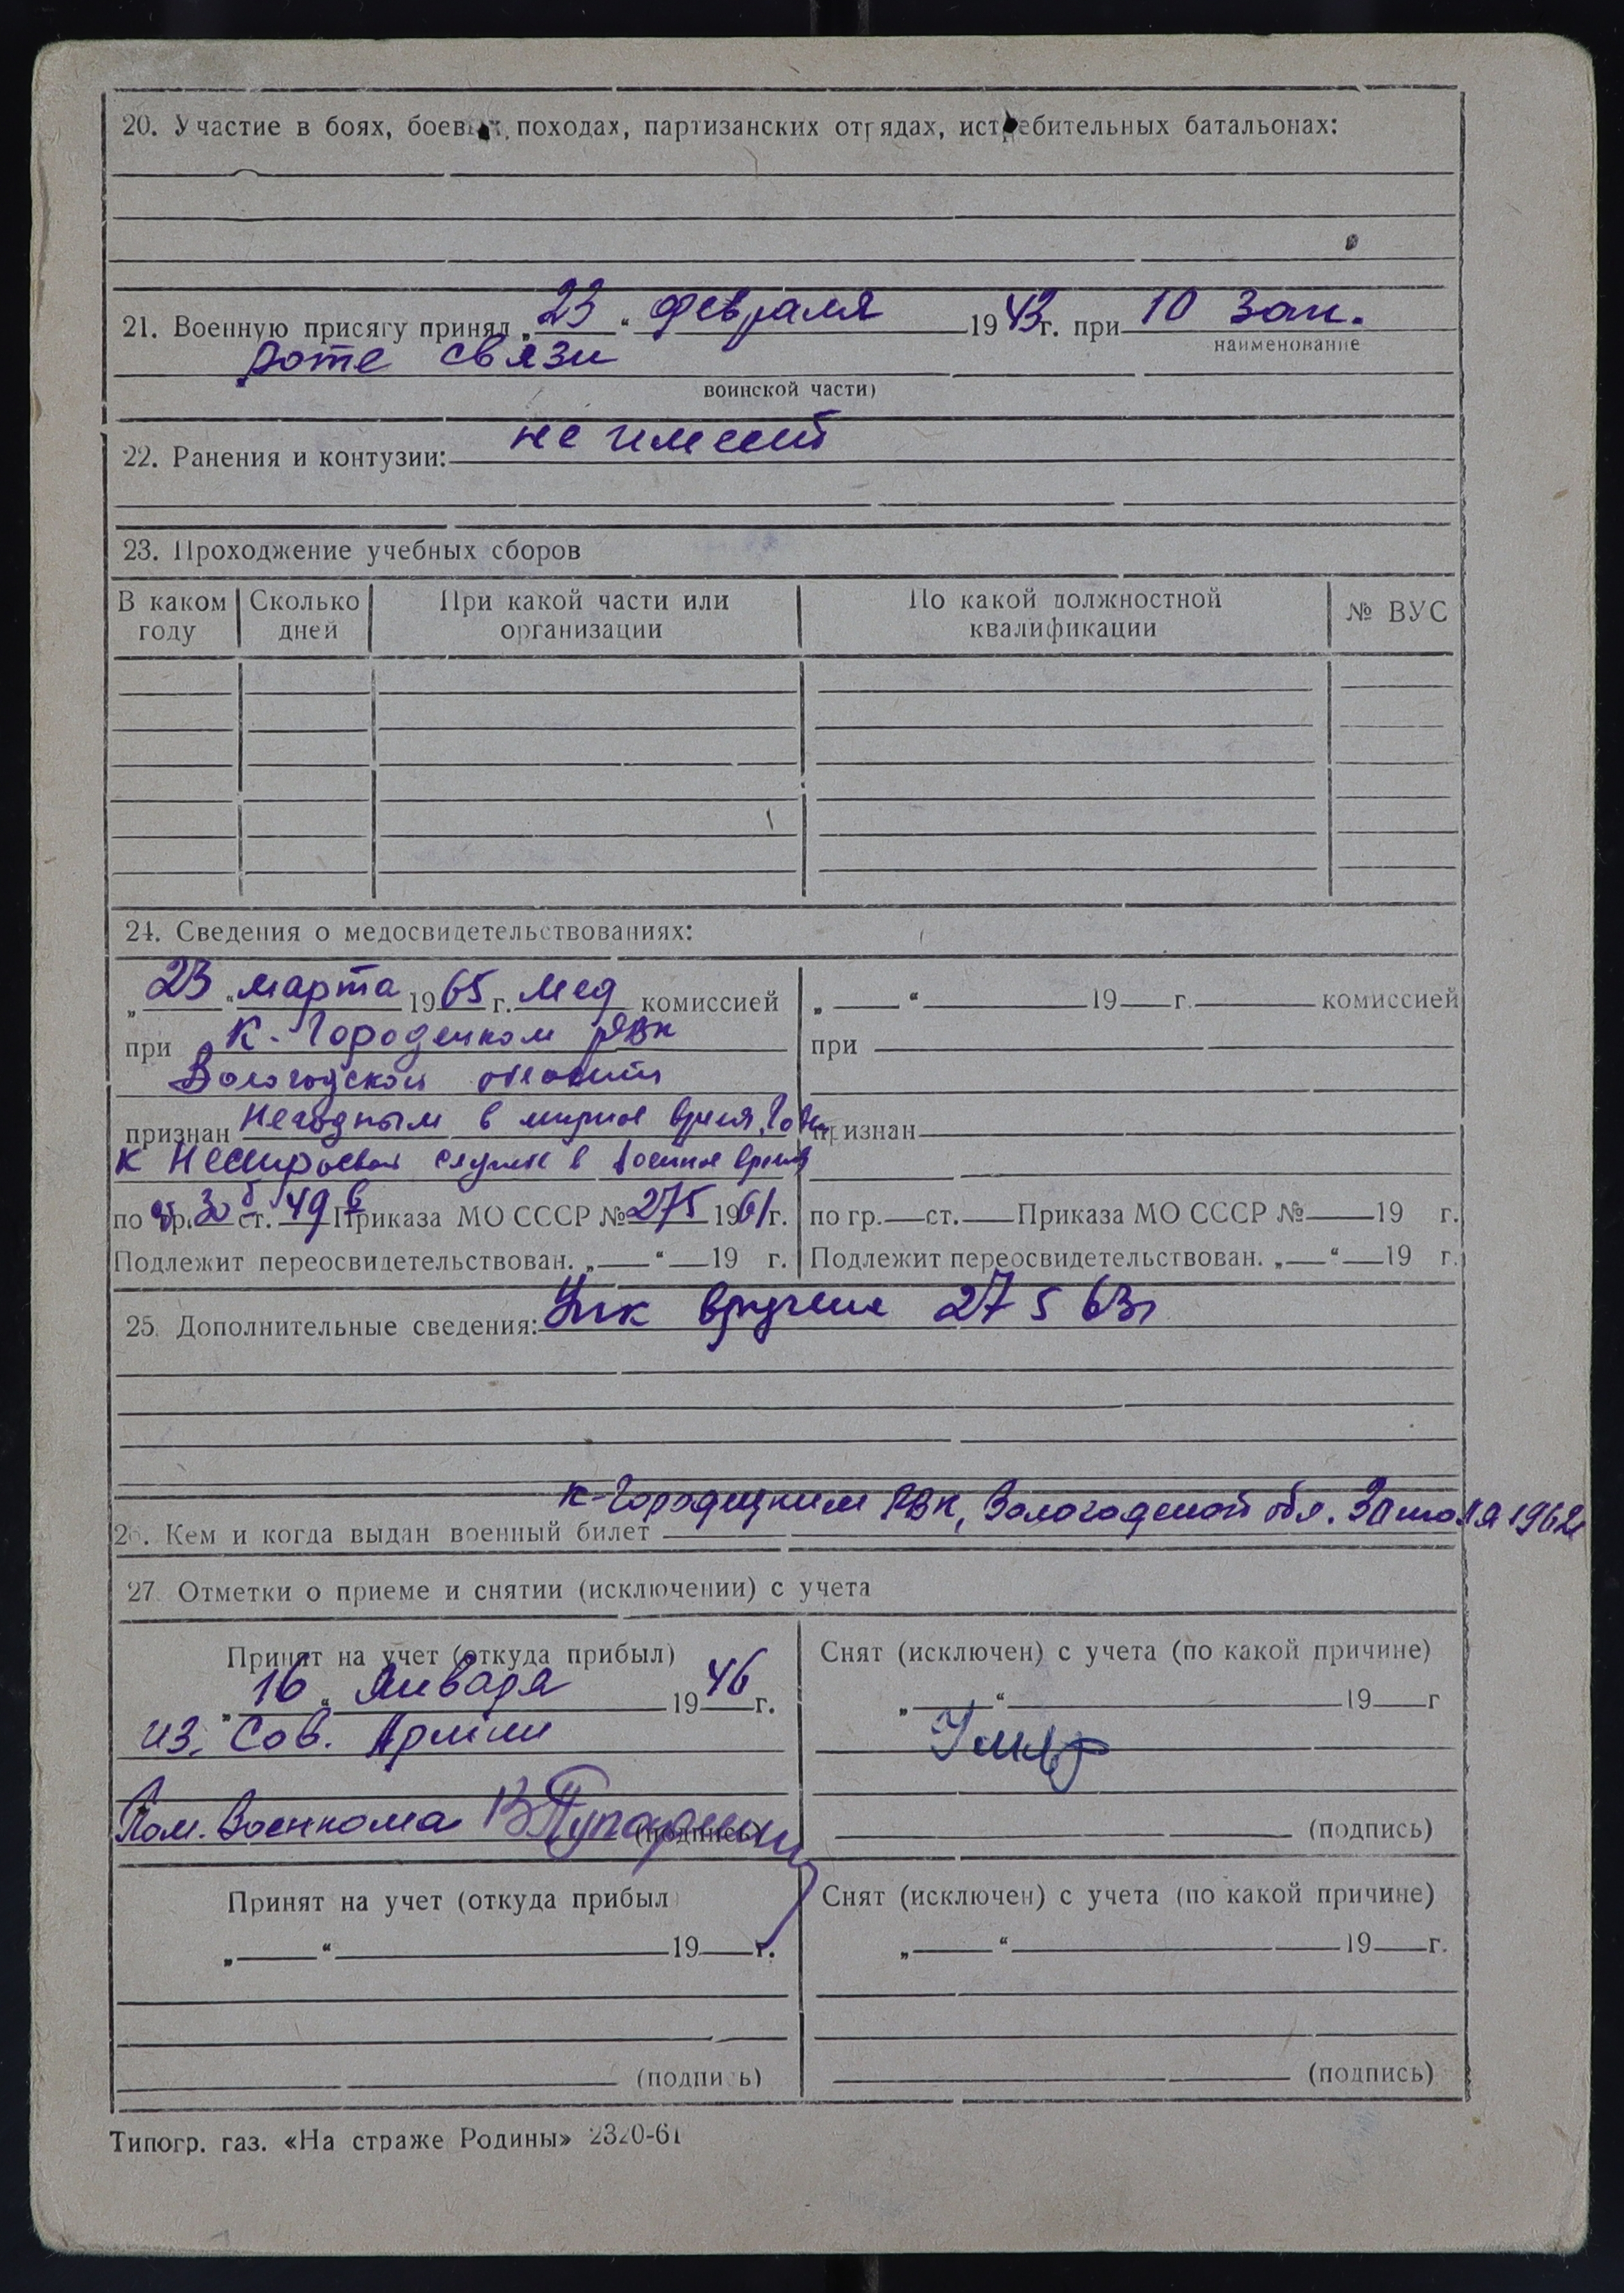 20. Участие в боях, боевых походах, партизанских отрядах, истребительных батальонах:
21. Военную присягу принял „23“ февраля 1943г. при 10 зап.
наименование
роте связи
воинской части)
22. Ранения и контузии: не имеет
23. Прохождение учебных сборов
В каком году Сколько дней При какой части или организации По какой должностной квалификации № ВУС
24. Сведения о медосвидетельствованиях:
„23“ марта 1965 г. мед комиссией „ “ 19 г. комиссией
при К-Городецком РВК при
Вологодской области
признан Негодным в мирное время, годн признан
к нестроевой службе в военное время
по гр. 30 ст. 49 в Приказа МО СССР № 275 1961г. по гр. ст. Приказа МО СССР № 19 г.
Подлежит переосвидетельствован. „ “ 19 г. Подлежит переосвидетельствован. „ “ 19 г.
25. Дополнительные сведения: вручена 27 5 63г
К-Городецким РВК, Вологодской обл. 30 июля 1962
26. Кем и когда выдан военный билет
27. Отметки о приеме и снятии (исключении) с учета
Принят на учет (откуда прибыл) Снят (исключен) с учета (по какой причине)
„16“ января 1946 г. „ “ 19 г
из Сов. Армии Умер
Пом. Военкома (подпись) (подпись)
Принят на учет (откуда прибыл) Снят (исключен) с учета (по какой причине)
„ “ 19 г. „ “ 19 г.
(подпись) (подпись)
Типогр. газ. «На страже Родины» 2320-61